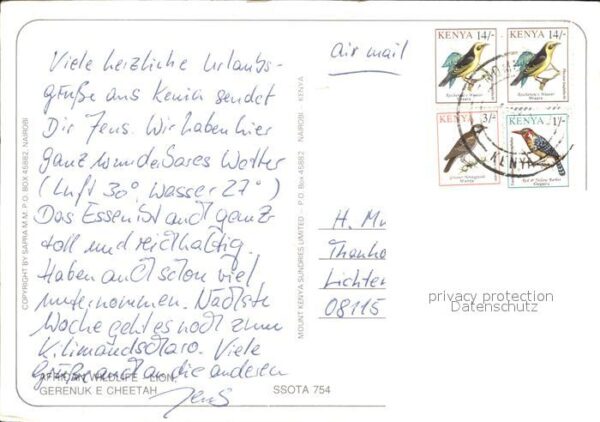 Viele herzliche Urlaubs-
grüße aus Kenia sendet
Dir Jens. Wir haben hier
ganz wunderbares Wetter
(Luft 30°, Wasser 27°)
Das Essen ist auch ganz
toll und reichhaltig.
Haben auch schon viel
unternommen. Nächste
Woche geht es noch zum
Kilimandscharo. Viele
Grüße auch an die anderen
Jens
AFRICAN WILDLIFE - LION,
GERENUK E CHEETAH
SSOTA 754
COPYRIGHT BY SAPRA M.M. P.O. BOX 45882, NAIROBI
MOUNT KENYA SUNDRIES LIMITED - P.O. Box 45882, NAIROBI - KENYA
air mail
KENYA 14/-
KENYA 14/-
KENYA 3/-
KENYA 1/-
KENYA
H. Mu
Thanho
Lichten
08115
privacy protection
Datenschutz